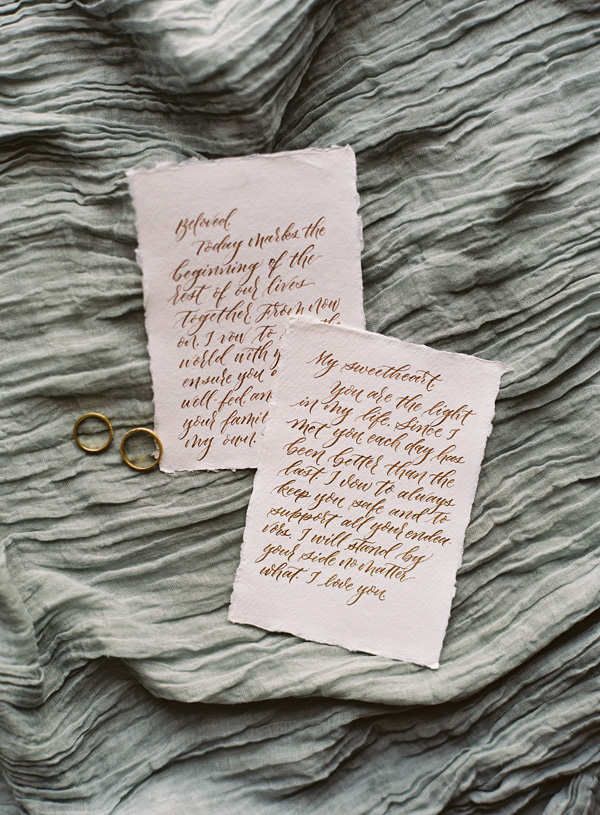 Beloved
Today marks the
beginning of the
rest of our lives
together From now
on, I vow to
world with
ensure you
well fed an
your famil
my own
My sweetheart
You are the light
in my life. Since I
met you each day has
been better than the
last. I vow to always
keep you safe and to
support all your endea
vors. I will stand by
your side no matter
what. I love you